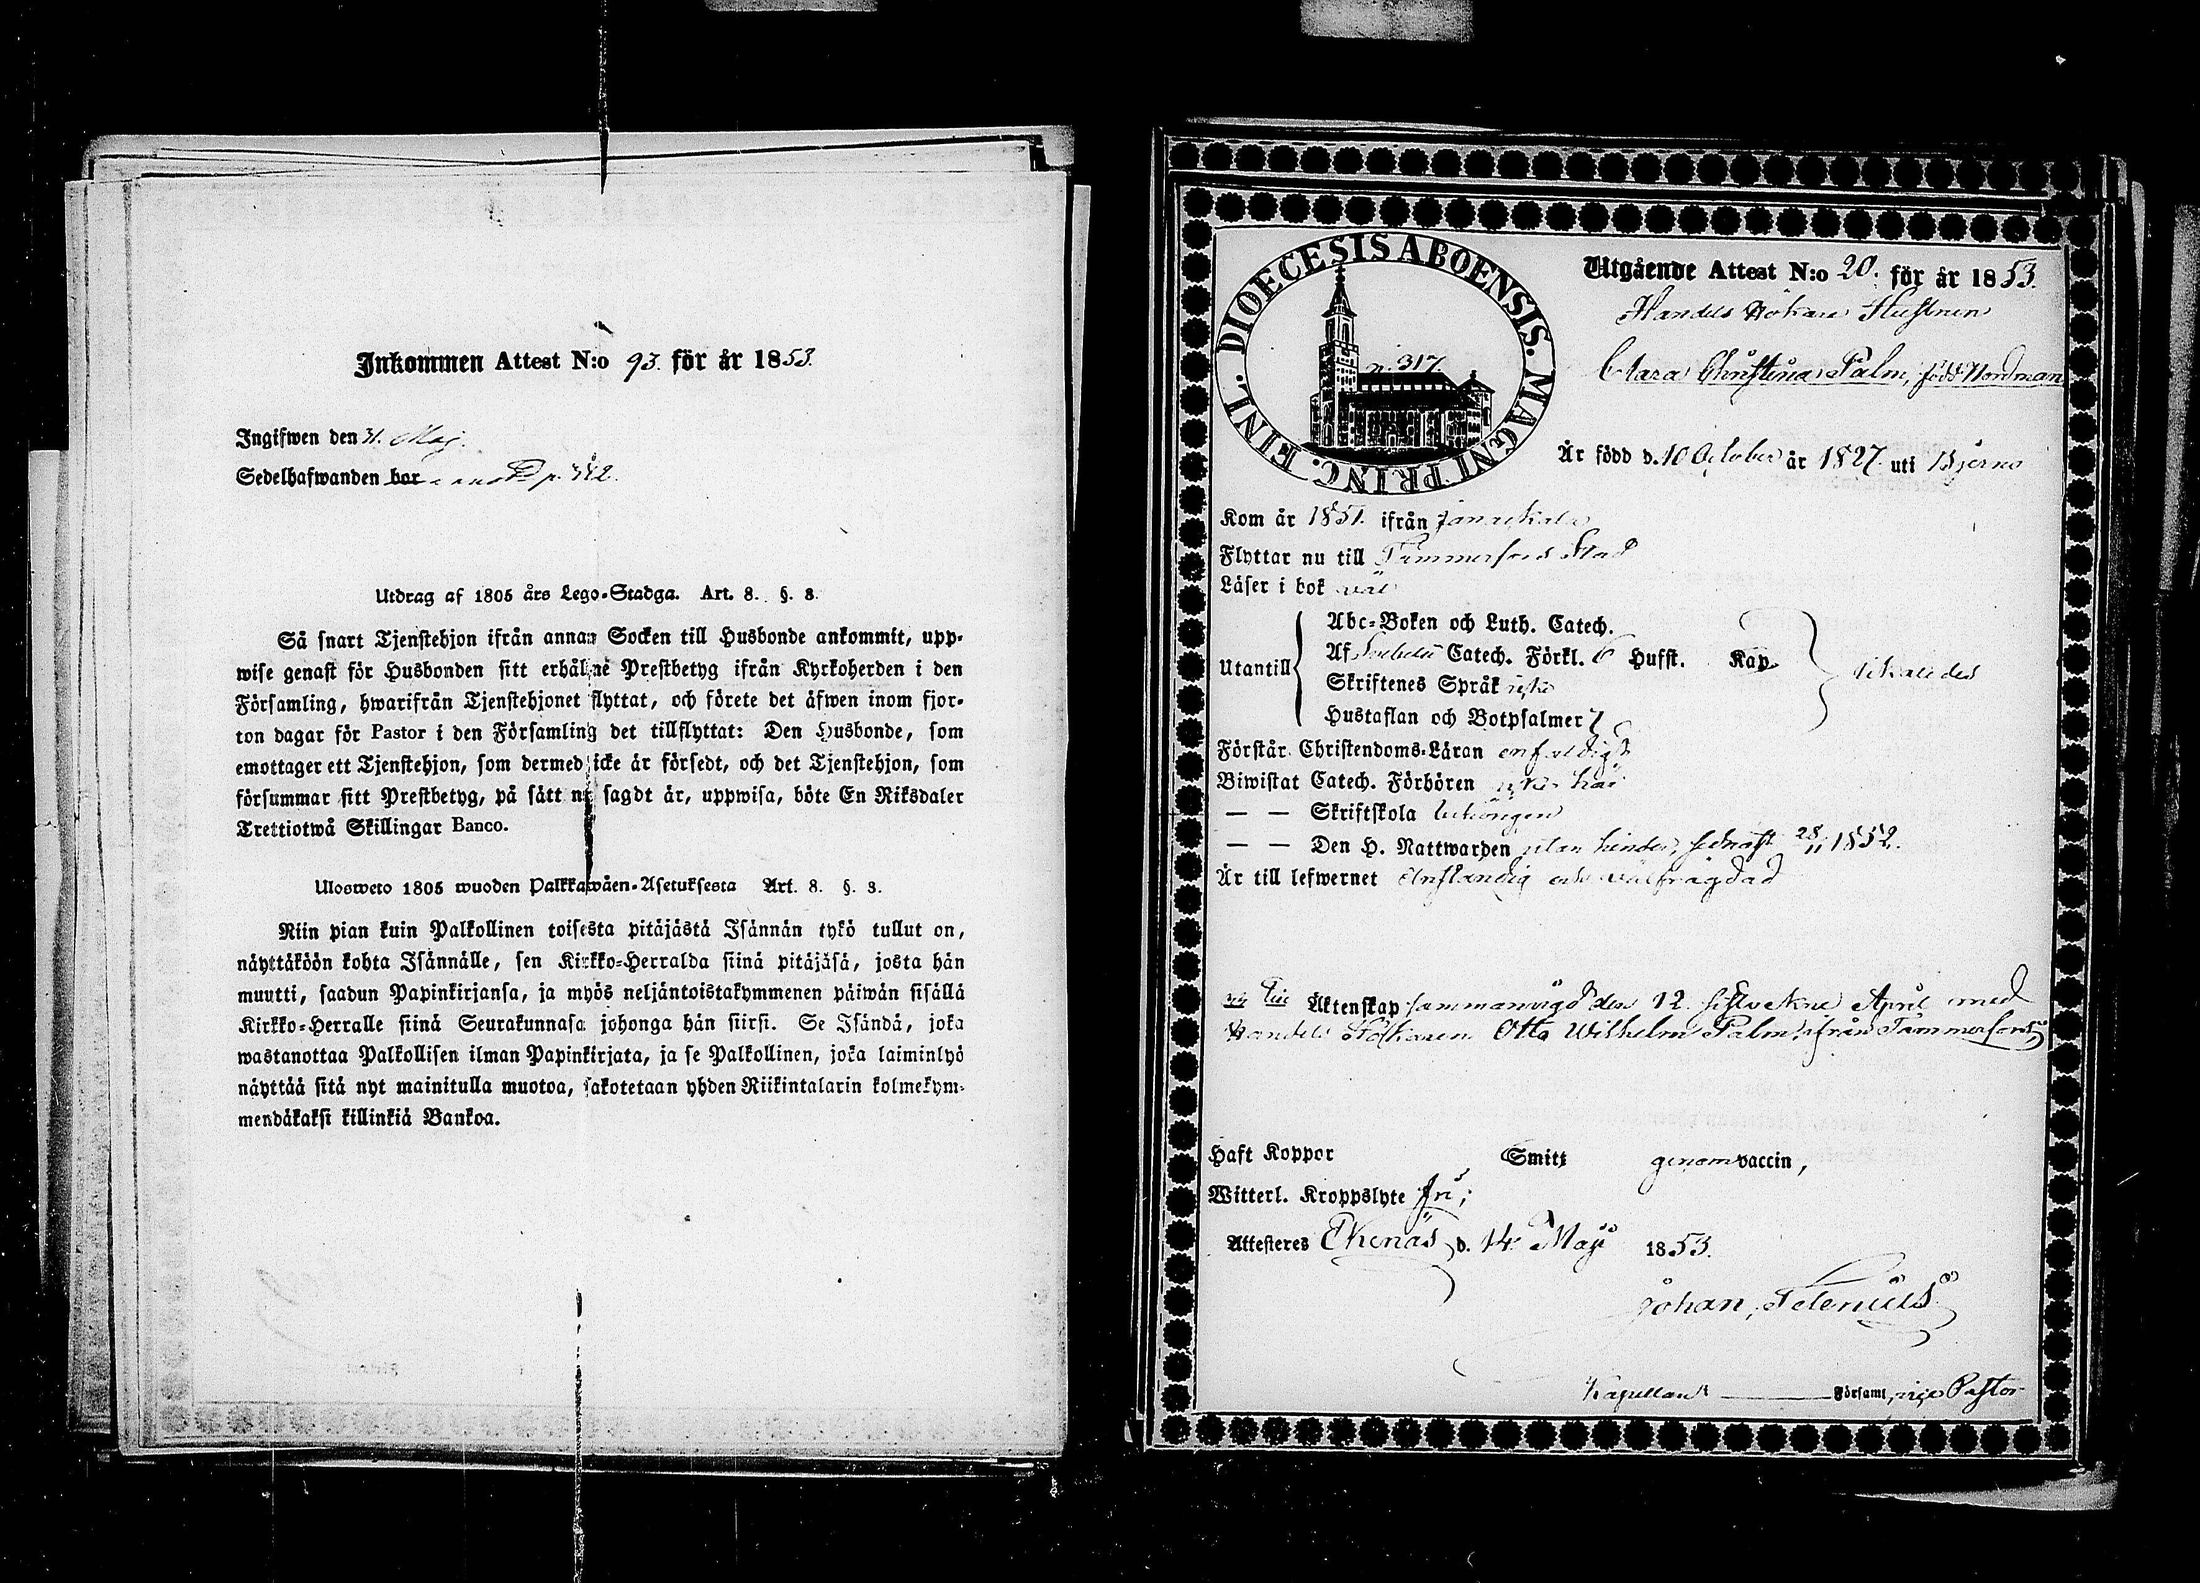 Inkommen Attest N:o 93. för år 1853.
Ingifwen den 31. Maj.
Sedelhafwanden bor
Utdrag af 1805 års Lego-Stadga. Art. 8. §. 8.
Så snart Tjenstehjon ifrån annan Socken till Husbonde ankommit, upp-
wise genast för Husbonden sitt erhållne Prestbetyg ifrån Kyrkoherden i den
Församling, hwarifrån Tjenstehjonet flyttat, och förete det äfwen inom fjor-
ton dagar för Pastor i den Församling det tillflyttat: Den Husbonde, som
emottager ett Tjenstehjon, som dermed icke är försedt, och det Tjenstehjon, som
försummar sitt Prestbetyg, på sätt nu sagdt är, uppwisa, böte En Riksdaler
Trettiotwå Skillingar Banco.
Ulosweto 1805 wuoden Palkkawäen-Asetuksesta Art. 8. §. 8.
Niin pian kuin Palkollinen toisesta pitäjästä Isännän tykö tullut on,
näyttäköön kohta Isännälle, sen Kirkko-Herralda siinä pitäjäsä, josta hän
muutti, saadun Papinkirjansa, ja myös neljäntoistakymmenen päiwän sisällä
Kirkko-Herralle siinä Seurakunnasa johonga hän siirsi. Se Isändä, joka
wastanottaa Palkollisen ilman Papinkirjata, ja se Palkollinen, joka laiminlyö
näyttää sitä nyt mainitulla muotoa, sakotetaan yhden Riikintalarin kolmekym-
mendäkaksi killinkiä Bankoa.
DIOECESIS ABOENSIS. MAGNI PRINC. FINL.
n. 317.
Utgående Attest N:o 20. för år 1853.
Handels Hustrun
Clara Christina Palm, född Nordman
Är född d. 10 October år 1827 uti Bjerno
Kom år 1851. ifrån
Flyttar nu till Tammerfors Stad
Läser i bok väl
Utantill
Abc-Boken och Luth. Catech.
Af Svebelii Catech. Förkl. 6 Hufst. Kap.
Skriftenes Språk
Hustaflan och Botpsalmer 7
Förstår Christendoms-Läran enfaldigt
Biwistat Catech. Förhören här
— — Skriftskola behörigen
— — Den H. Nattwarden utan hinder, sednast 28/11 1852.
Är till lefwernet Anständig och välfrägdad
Äktenskap sammanvigd den 12 sistvekne April med
Handels Otto Wilhelm Palm, ifrån Tammerfors;
Haft Koppor Smitt genom vaccin,
Witterl. Kroppslyte fri;
Attesteres Ekenäs d. 14. Maji 1853.
Johan Telenius
Kapellan Församl, vice Pastor